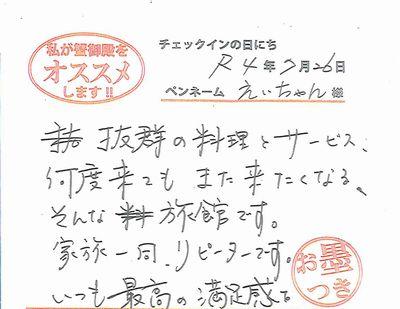 私が蟹御殿を
オススメ
します!!
チェックインの日にち
R4年7月26日
ペンネーム えいちゃん 様
抜群の料理とサービス、
何度来ても また来たくなる、
そんな 旅館です。
家族一同、リピーターです。
いつも最高の満足感で
お墨
つき